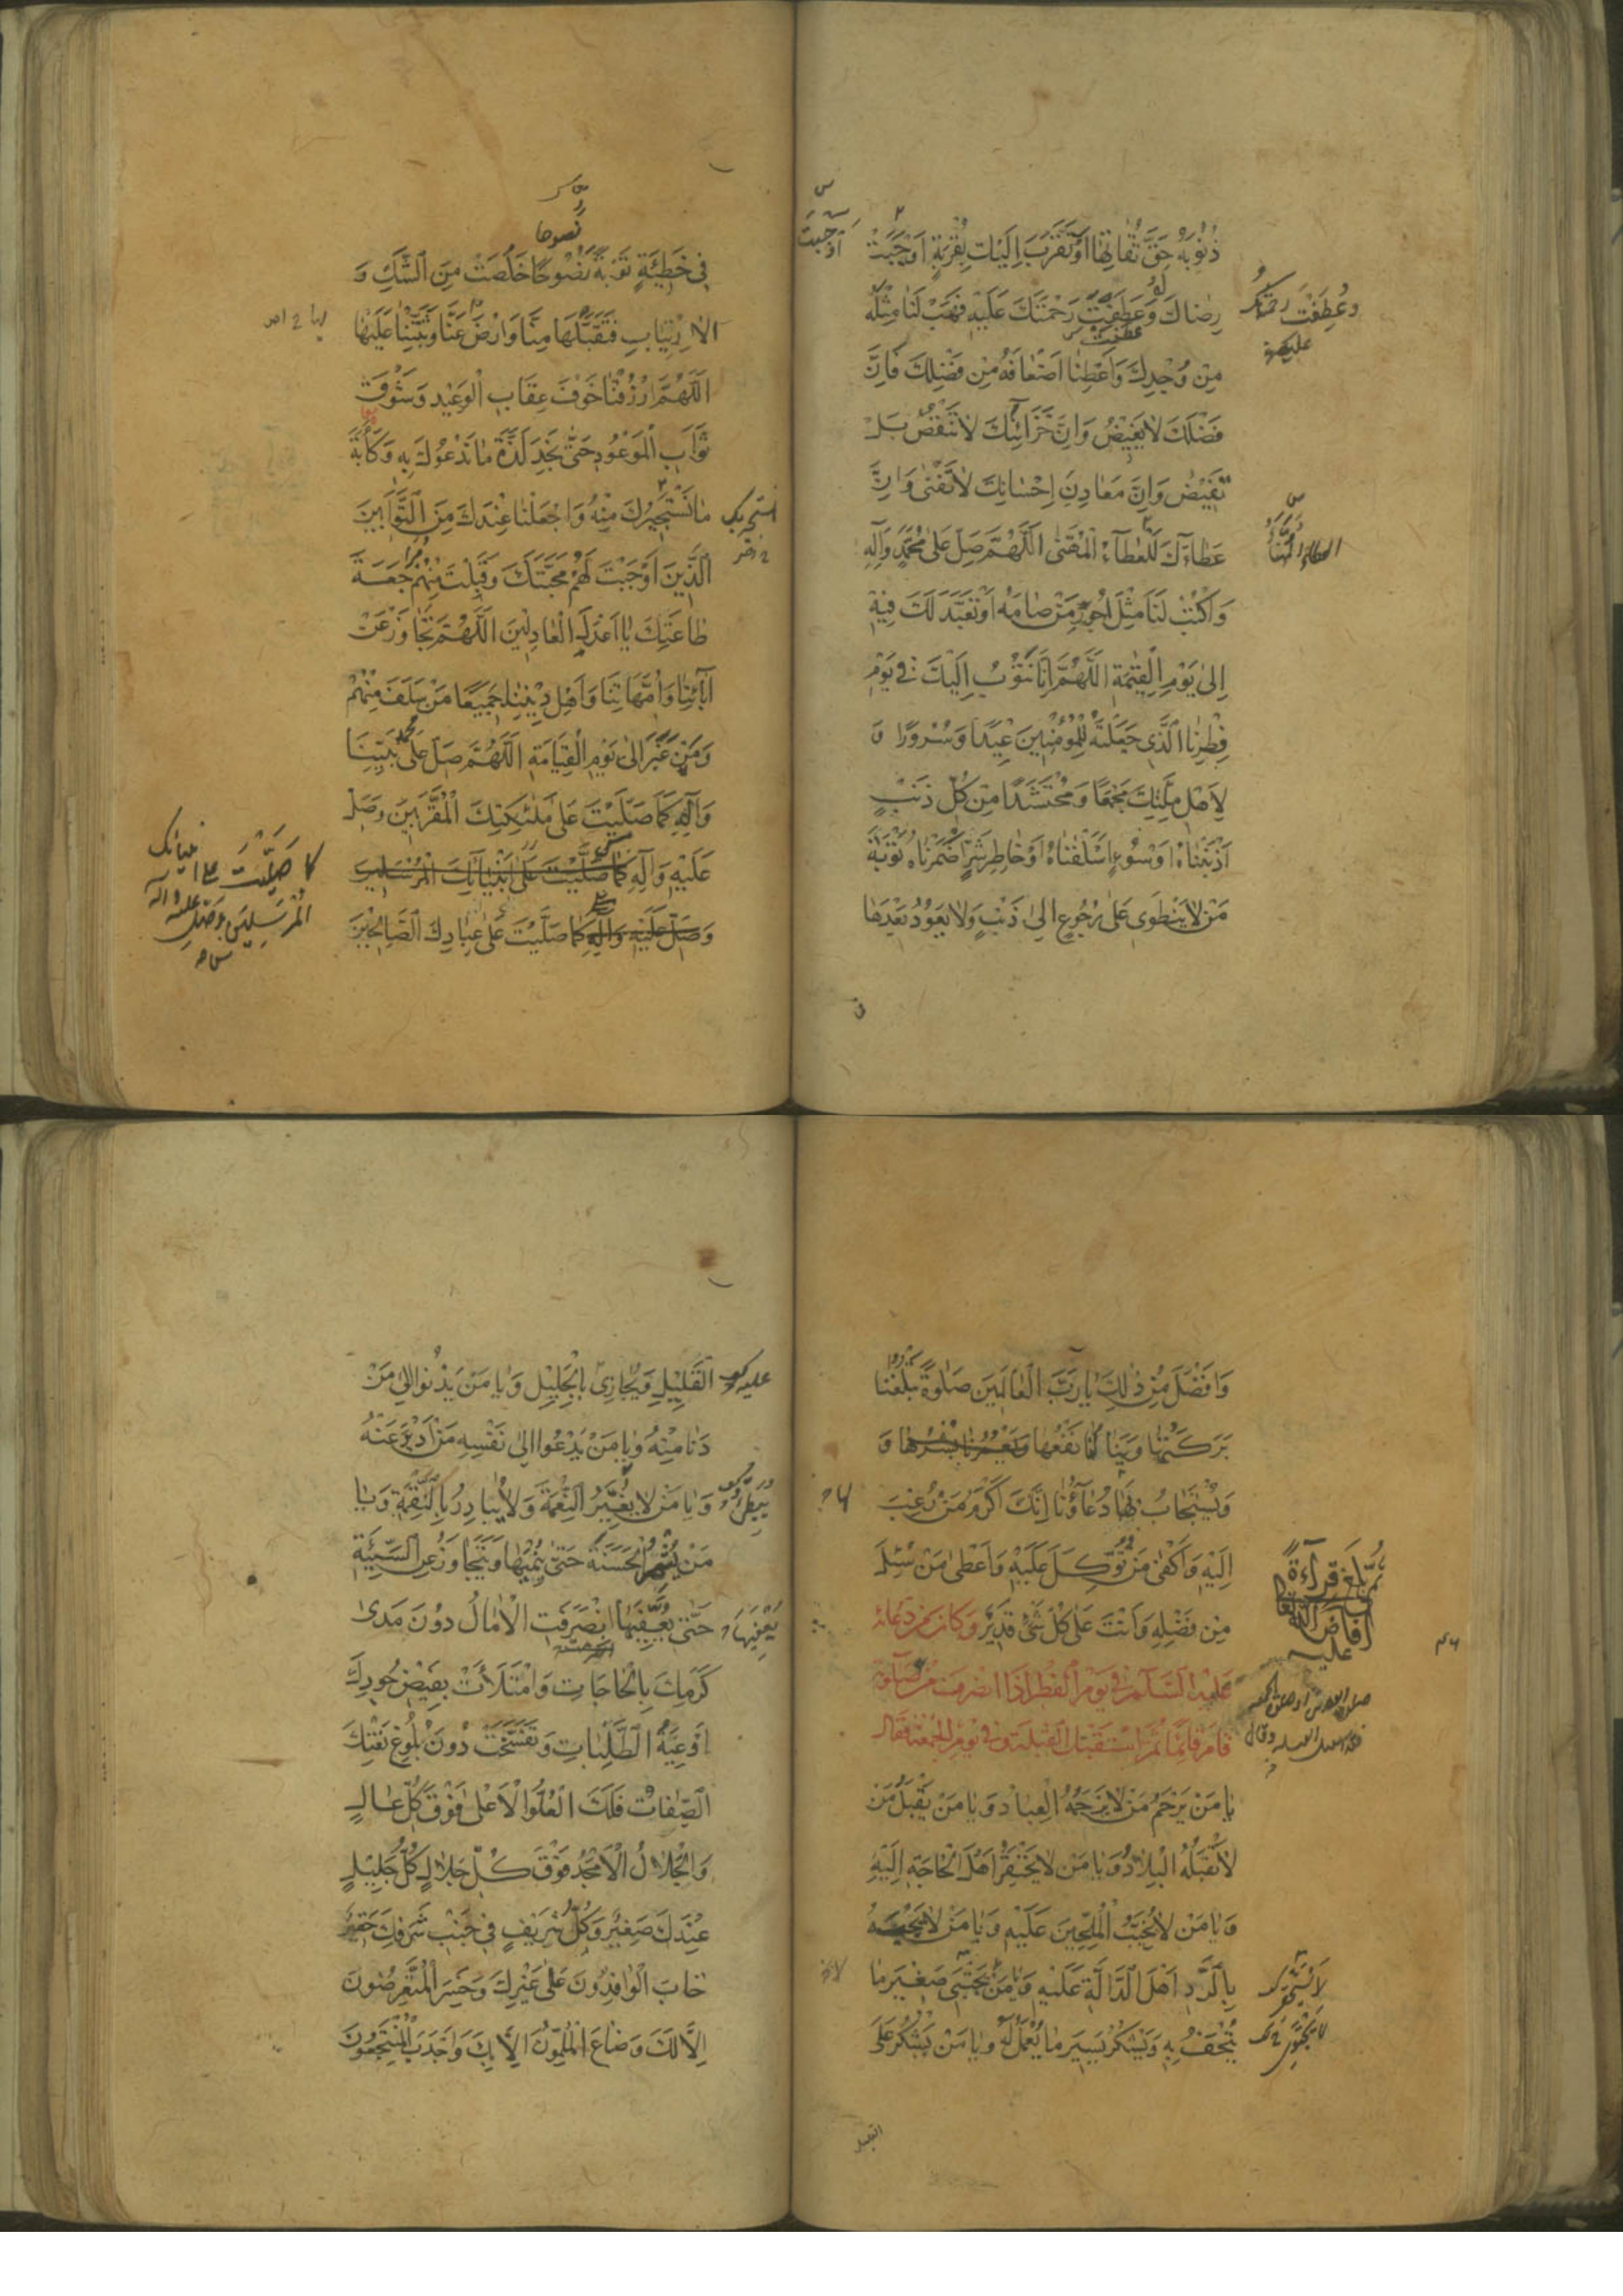 ذُنُوبَهُ حَقَّ تُقَاتِهَا اَوْ تَقَرَّبَ اِلَيْكَ بِقُرْبَةٍ اَوْجَبَتْ
رِضَاكَ وَعَطَفَتْ رَحْمَتَكَ عَلَيْهِ فَهَبْ لَنَا مِثْلَهُ
مِنْ وُجْدِكَ وَاَعْطِنَا اَضْعَافَهُ مِنْ فَضْلِكَ فَاِنَّ
فَضْلَكَ لَا يَغِيضُ وَاِنَّ خَزَآئِنَكَ لَا تَنْقُصُ بَلْ
تَفِيضُ وَاِنَّ مَعَادِنَ اِحْسَانِكَ لَا تَفْنٰى وَاِنَّ
عَطَاءَكَ لَلْعَطَآءُ الْمُهَنّٰى اَللّٰهُمَّ صَلِّ عَلٰى مُحَمَّدٍ وَآلِهِ
وَاكْتُبْ لَنَا مِثْلَ اُجُورِ مَنْ صَامَهُ اَوْ تَعَبَّدَ لَكَ فِيهِ
اِلٰى يَوْمِ الْقِيٰمَةِ اَللّٰهُمَّ اِنَّا نَتُوبُ اِلَيْكَ فِي يَوْمِ
فِطْرِنَا الَّذِي جَعَلْتَهُ لِلْمُؤْمِنِينَ عِيدًا وَسُرُورًا وَ
لِاَهْلِ مِلَّتِكَ مَجْمَعًا وَمُحْتَشَدًا مِنْ كُلِّ ذَنْبٍ
اَذْنَبْنَاهُ اَوْ سُوءٍ اَسْلَفْنَاهُ اَوْ خَاطِرِ شَرٍّ اَضْمَرْنَاهُ تَوْبَةَ
مَنْ لَا يَنْطَوِي عَلٰى رُجُوعٍ اِلٰى ذَنْبٍ وَلَا يَعُودُ بَعْدَهَا
اَوْجَبَتْ
وَعُطِفَتْ رَحْمَتُكَ
نصوحا
فِي خَطِيئَةٍ تَوْبَةً نَصُوحًا خَلَصَتْ مِنَ الشَّكِّ وَ
الْاِرْتِيَابِ فَتَقَبَّلْهَا مِنَّا وَارْضَ عَنَّا وَثَبِّتْنَا عَلَيْهَا
اَللّٰهُمَّ ارْزُقْنَا خَوْفَ عِقَابِ الْوَعِيدِ وَشَوْقَ
ثَوَابِ الْمَوْعُودِ حَتّٰى نَجِدَ لَذَّةَ مَا نَدْعُوكَ بِهِ وَكَأْبَةَ
مَا نَسْتَجِيرُكَ مِنْهُ وَاجْعَلْنَا عِنْدَكَ مِنَ التَّوَّابِينَ
الَّذِينَ اَوْجَبْتَ لَهُمْ مَحَبَّتَكَ وَقَبِلْتَ مِنْهُمْ مُرَاجَعَةَ
طَاعَتِكَ يَا اَعْدَلَ الْعَادِلِينَ اَللّٰهُمَّ تَجَاوَزْ عَنْ
آبَائِنَا وَاُمَّهَاتِنَا وَاَهْلِ دِينِنَا جَمِيعًا مَنْ سَلَفَ مِنْهُمْ
وَمَنْ غَبَرَ اِلٰى يَوْمِ الْقِيَامَةِ اَللّٰهُمَّ صَلِّ عَلٰى مُحَمَّدٍ نَبِيِّنَا
وَآلِهِ كَمَا صَلَّيْتَ عَلٰى مَلٰئِكَتِكَ الْمُقَرَّبِينَ وَصَلِّ
عَلَيْهِ وَآلِهِ كَمَا صَلَّيْتَ عَلٰى اَنْبِيَائِكَ الْمُرْسَلِينَ
وَصَلِّ عَلَيْهِ وَآلِهِ كَمَا صَلَّيْتَ عَلٰى عِبَادِكَ الصَّالِحِينَ
كما صَلَّيْتَ على انبيائك
الْمُرْسَلِينَ وَصَلِّ عليه وآله
وَاَفْضَلَ مِنْ ذٰلِكَ يَا رَبَّ الْعَالَمِينَ صَلٰوةً تَبْلُغُنَا
بَرَكَتُهَا وَيَنَالُنَا نَفْعُهَا وَ
وَيُسْتَجَابُ بِهَا دُعَآؤُنَا اِنَّكَ اَكْرَمُ مَنْ رُغِبَ
اِلَيْهِ وَاَكْفٰى مَنْ تُوُكِّلَ عَلَيْهِ وَاَعْطٰى مَنْ سُئِلَ
مِنْ فَضْلِهِ وَاَنْتَ عَلٰى كُلِّ شَيْءٍ قَدِيرٌ وَكَانَ مِنْ دُعَائِهِ
عَلَيْهِ السَّلَامُ فِي يَوْمِ الْفِطْرِ اِذَا انْصَرَفَ مِنْ صَلٰوتِهِ
قَامَ قَائِمًا ثُمَّ اسْتَقْبَلَ الْقِبْلَةَ وَفِي يَوْمِ الْجُمُعَةِ فَقَالَ
يَا مَنْ يَرْحَمُ مَنْ لَا يَرْحَمُهُ الْعِبَادُ وَيَا مَنْ يَقْبَلُ مَنْ
لَا تَقْبَلُهُ الْبِلَادُ وَيَا مَنْ لَا يَحْتَقِرُ اَهْلَ الْحَاجَةِ اِلَيْهِ
وَيَا مَنْ لَا يُخَيِّبُ الْمُلِحِّينَ عَلَيْهِ وَيَا مَنْ لَا يَجْبَهُ
بِالرَّدِّ اَهْلَ الدَّالَّةِ عَلَيْهِ وَيَا مَنْ يَجْتَبِي صَغِيرَ مَا
يُتْحَفُ بِهِ وَيَشْكُرُ يَسِيرَ مَا يُعْمَلُ لَهُ وَيَا مَنْ يَشْكُرُ عَلَى
ثُمَّ بَلَغَ قِرَاءَةً
اَفَاضَ اللّٰهُ
عليه
القليل
الْقَلِيلِ وَيُجَازِي بِالْجَلِيلِ وَيَا مَنْ يَدْنُو اِلٰى مَنْ
دَنَا مِنْهُ وَيَا مَنْ يَدْعُو اِلٰى نَفْسِهِ مَنْ اَدْبَرَ عَنْهُ
وَيَا مَنْ لَا يُغَيِّرُ النِّعْمَةَ وَلَا يُبَادِرُ بِالنَّقِمَةِ وَيَا
مَنْ يُثْمِرُ الْحَسَنَةَ حَتّٰى يُنْمِيَهَا وَيَتَجَاوَزُ عَنِ السَّيِّئَةِ
حَتّٰى يُعَفِّيَهَا اِنْصَرَفَتِ الْاٰمَالُ دُونَ مَدٰى
كَرَمِكَ بِالْحَاجَاتِ وَامْتَلَأَتْ بِفَيْضِ جُودِكَ
اَوْعِيَةُ الطَّلِبَاتِ وَتَفَسَّخَتْ دُونَ بُلُوغِ نَعْتِكَ
الصِّفَاتُ فَلَكَ الْعُلُوُّ الْاَعْلٰى فَوْقَ كُلِّ عَالٍ
وَالْجَلَالُ الْاَمْجَدُ فَوْقَ كُلِّ جَلَالٍ كُلُّ جَلِيلٍ
عِنْدَكَ صَغِيرٌ وَكُلُّ شَرِيفٍ فِي جَنْبِ شَرَفِكَ حَقِيرٌ
خَابَ الْوَافِدُونَ عَلٰى غَيْرِكَ وَخَسِرَ الْمُتَعَرِّضُونَ
اِلَّا لَكَ وَضَاعَ الْمُلِمُّونَ اِلَّا بِكَ وَاَجْدَبَ الْمُنْتَجِعُونَ